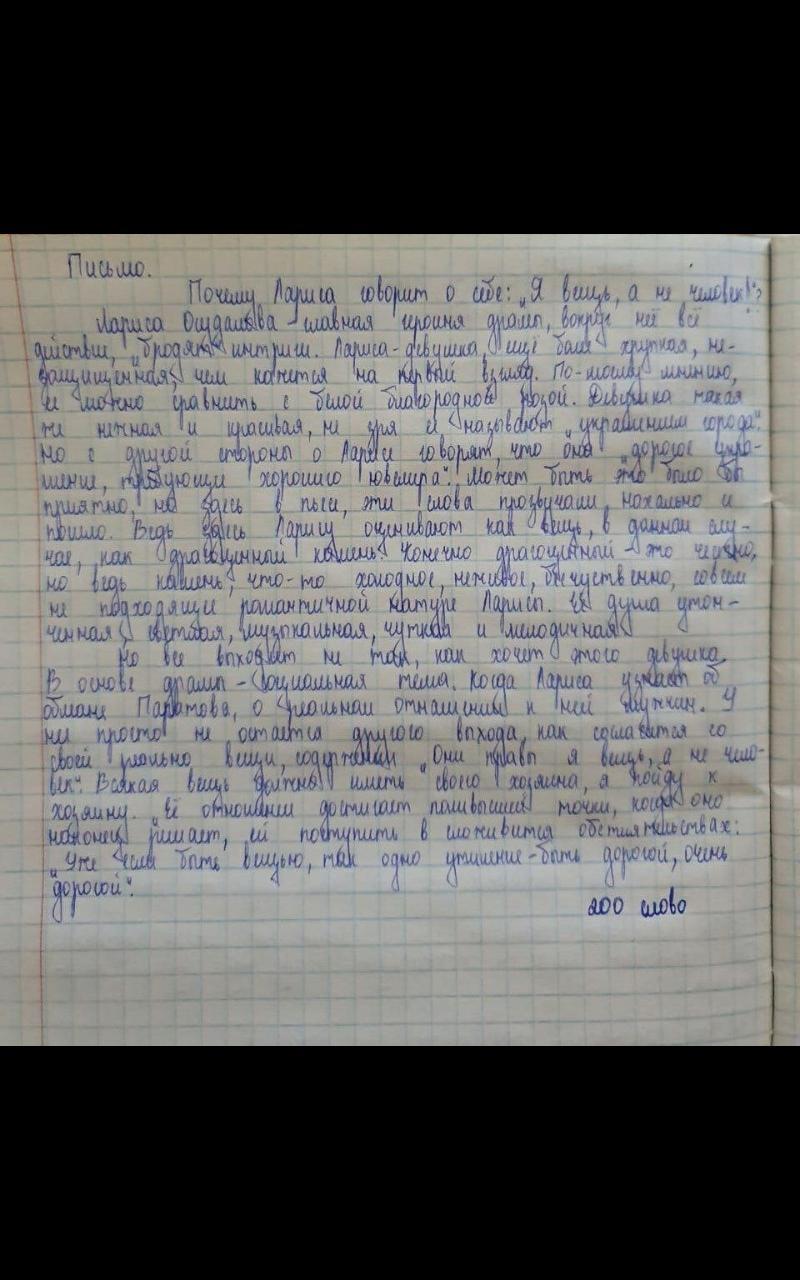 Письмо.
Почему Лариса говорит о себе: „Я вещь, а не человек!"?
Лариса Огудалова - главная героиня драмы, вокруг неё всё
действие, „бродят" интриги. Лариса - девушка, ещё боле хрупкая, не-
защищённая, чем кажется на первый взгляд. По-моему мнению,
её можно сравнить с белой благородной розой. Девушка такая
же нежная и красивая, не зря её называют „украшением города".
Но с другой стороны о Ларисе говорят, что она „дорогое укра-
шение, требующи хорошего ювелира". Может быть это было бы
приятно, но здесь в пьесе, эти слова прозвучали, нахально и
пошло. Ведь здесь Ларису оценивают как вещь, в данном слу-
чае, как драгоценный камень. Конечно драгоценный - это
но ведь камень, что-то холодное, неживое, бесчуственно, совсем
не подходящие романтичной натуре Ларисы. Её душа утон-
ченная, светлая, музыкальная, чуткая и мелодичная.
Но все выходит не так, как хочет этого девушка.
В основе драмы - социальная тема. Когда Лариса узнает об
обмане Паратова, о реальном отношении к ней мужчин. У
неё просто не остается другого выхода, как согласится со
своей ролью вещи, „Они правы я вещь, а не чело-
век". Всякая вещь должна иметь своего хозяина, я пойду к
хозяину. „Её отношении достигает наивысшей точки, когда оно
наконец решает, ей поступить в обстиятельствах:
„Уже если быть вещью, так одно утишение - быть дорогой, очень
дорогой".
200 слово